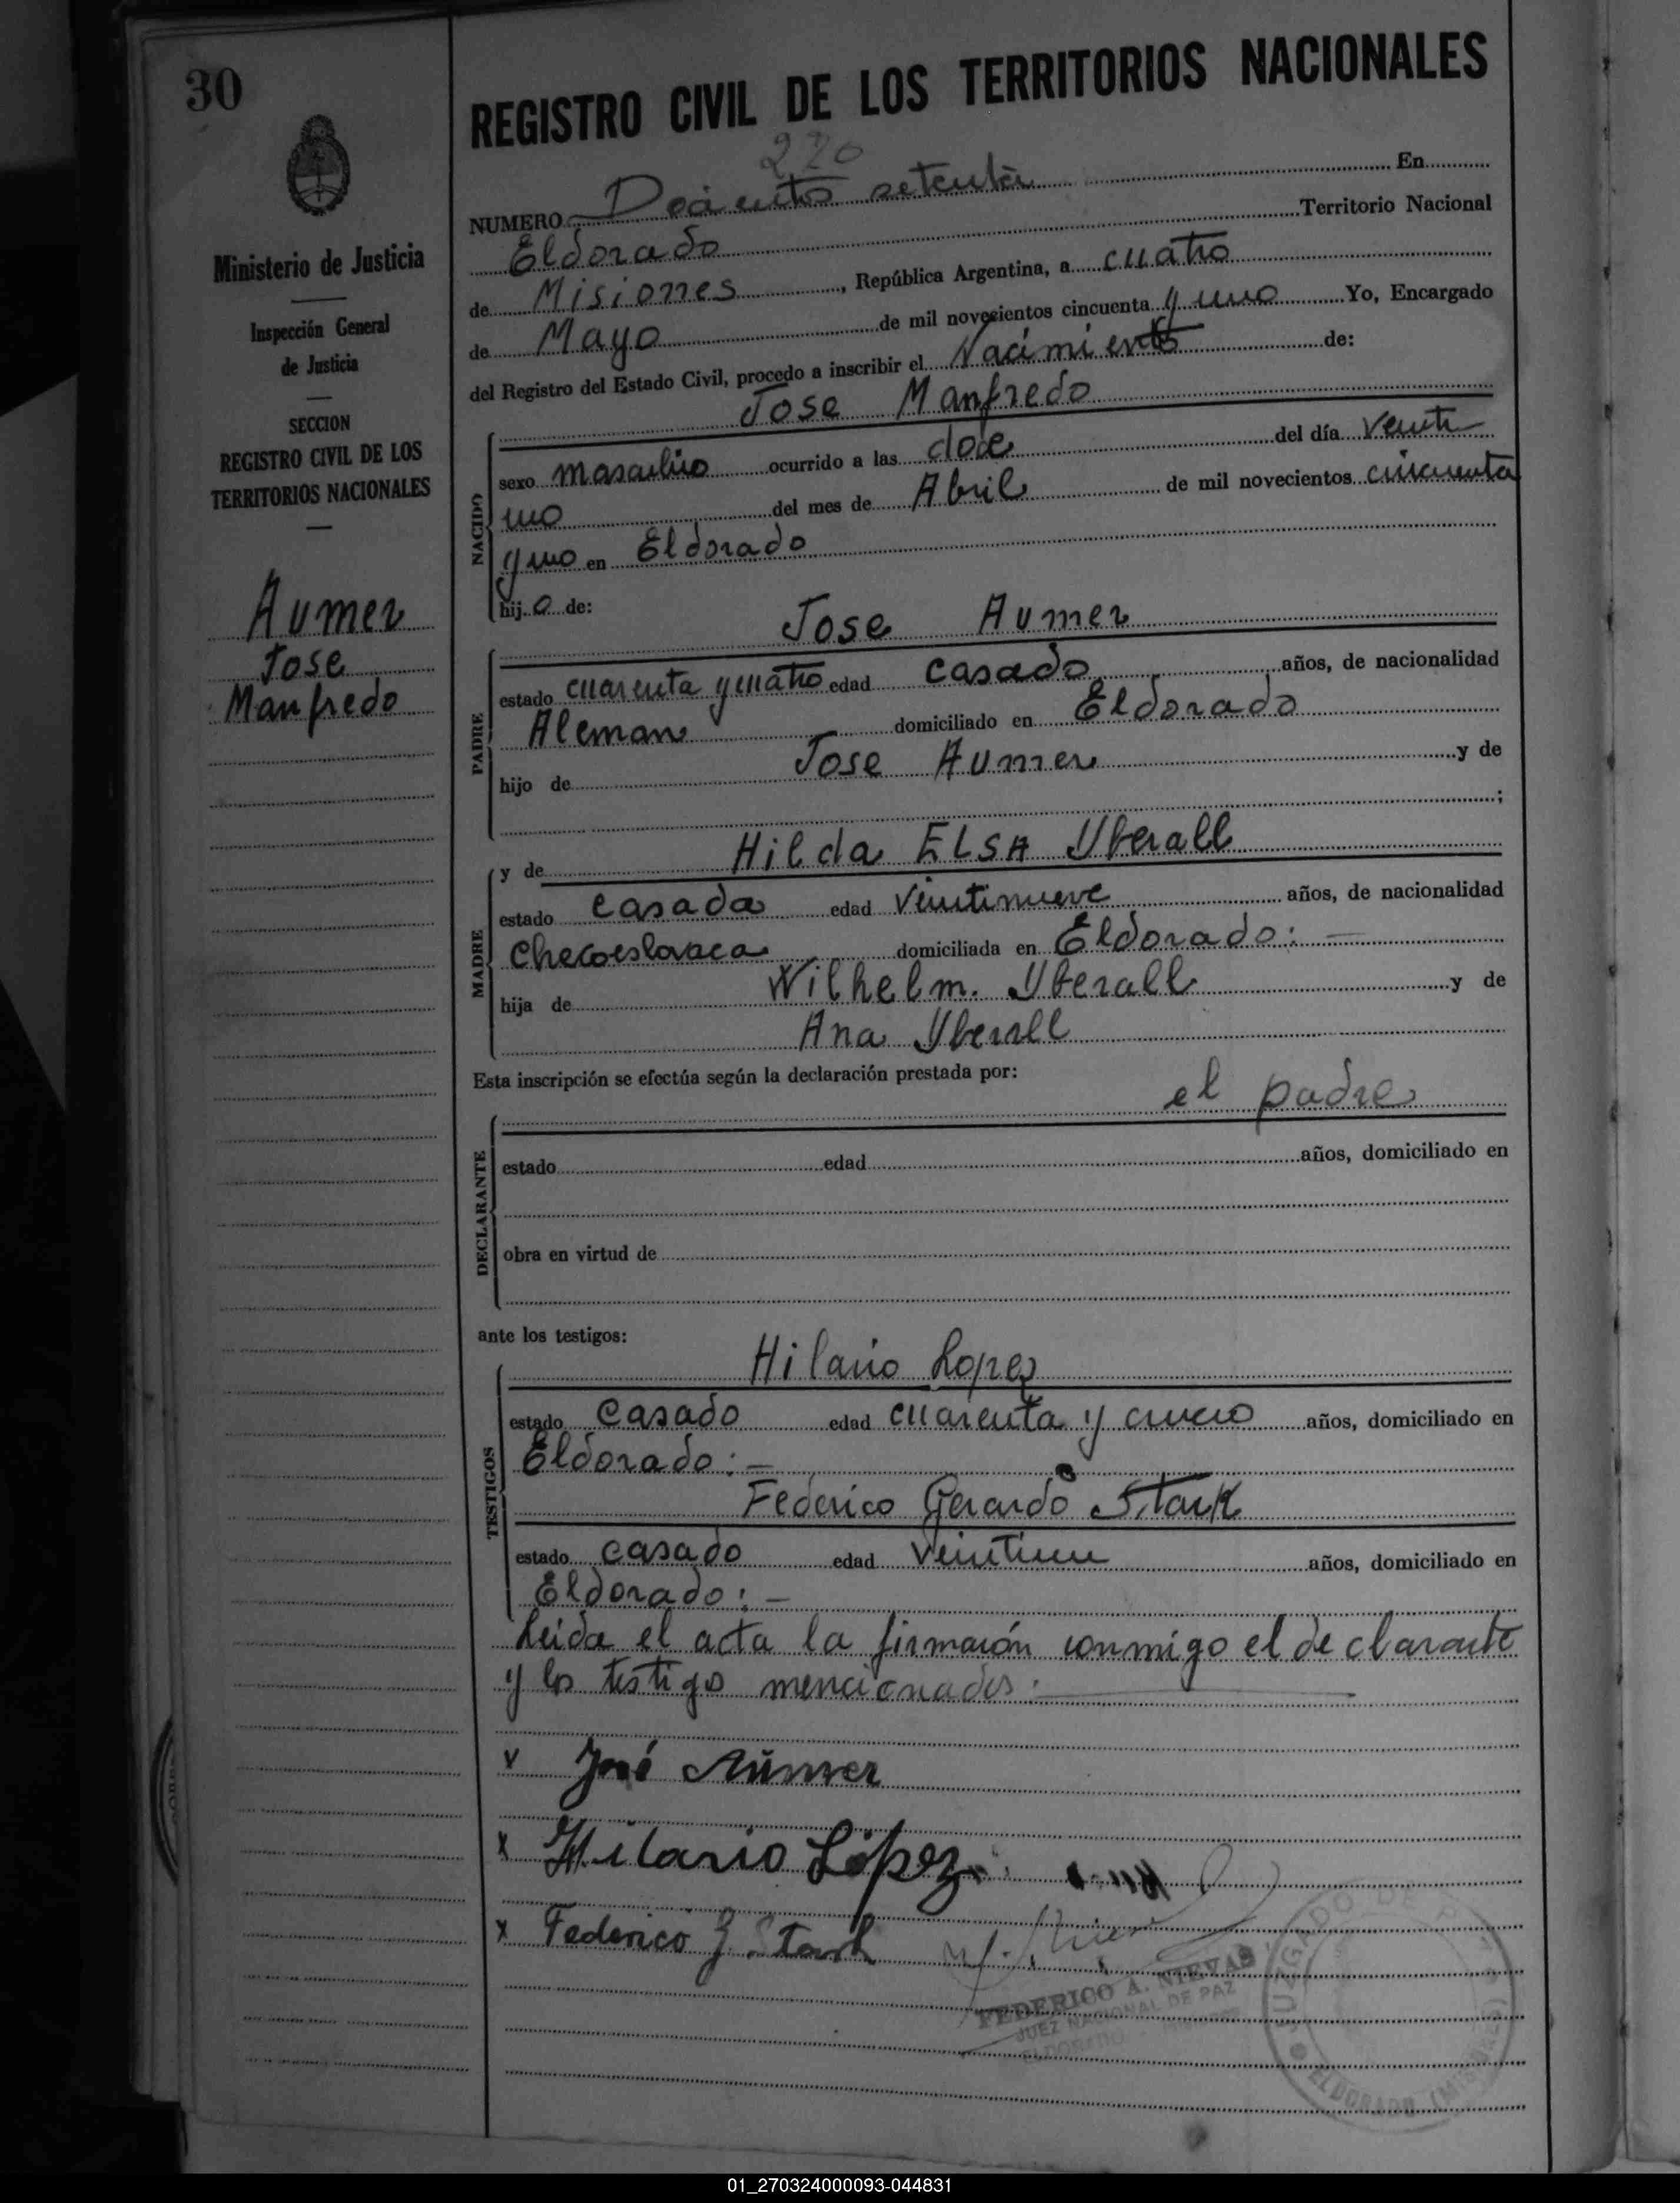 30
Ministerio de Justicia
Inspección General
de Justicia
SECCION
REGISTRO CIVIL DE LOS
TERRITORIOS NACIONALES
Aumer
Jose
Manfredo
REGISTRO CIVIL DE LOS TERRITORIOS NACIONALES
NUMERO Docientos setenta En
Eldorado Territorio Nacional
de Misiones, República Argentina, a cuatro
de Mayo de mil novecientos cincuenta y uno Yo, Encargado
del Registro del Estado Civil, procedo a inscribir el Nacimiento de:
Jose Manfredo
NACIDO
sexo masculino ocurrido a las doce del día veinti
uno del mes de Abril de mil novecientos cincuenta
y uno en Eldorado
hijo de:
Jose Aumer
PADRE
estado cuarenta y cuatro edad casado años, de nacionalidad
Aleman domiciliado en Eldorado
hijo de Jose Aumer y de
;
y de Hilda ELSA Yberall
MADRE
estado casada edad veintinueve años, de nacionalidad
checoeslovaca domiciliada en Eldorado: —
hija de Wilhelm. Yberall y de
Ana Yberall
Esta inscripción se efectúa según la declaración prestada por:
el padre
DECLARANTE
estado edad años, domiciliado en
obra en virtud de
ante los testigos:
Hilario Lopez
TESTIGOS
estado casado edad cuarenta y cinco años, domiciliado en
Eldorado: —
Federico Gerardo Stark
estado casado edad años, domiciliado en
Eldorado: —
Leida el acta la firmarón conmigo el declarante
y los testigo mencionados: —
v José Aumer
x Hilario López
x Federico G. Stark
FEDERICO A. NIEVAS
JUEZ NACIONAL DE PAZ
ELDORADO
JUZGADO DE
ELDORADO (MISIONES)
01_270324000093-044831